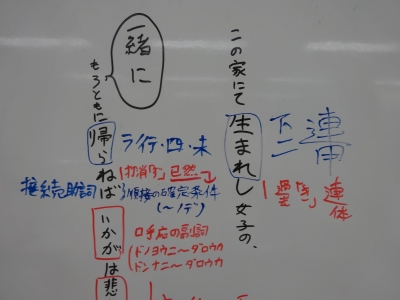 この家にて生まれし女子の、
下二
連用
「過去」「き」連体
一緒に
もろともに帰らねばいかがは悲
ラ行・四・未
「打消」已然
接続助詞
順接の確定条件
(〜ノデ)
呼応の副詞
(ドノヨウニ〜ダロウカ
ドンナニ〜ダロウカ